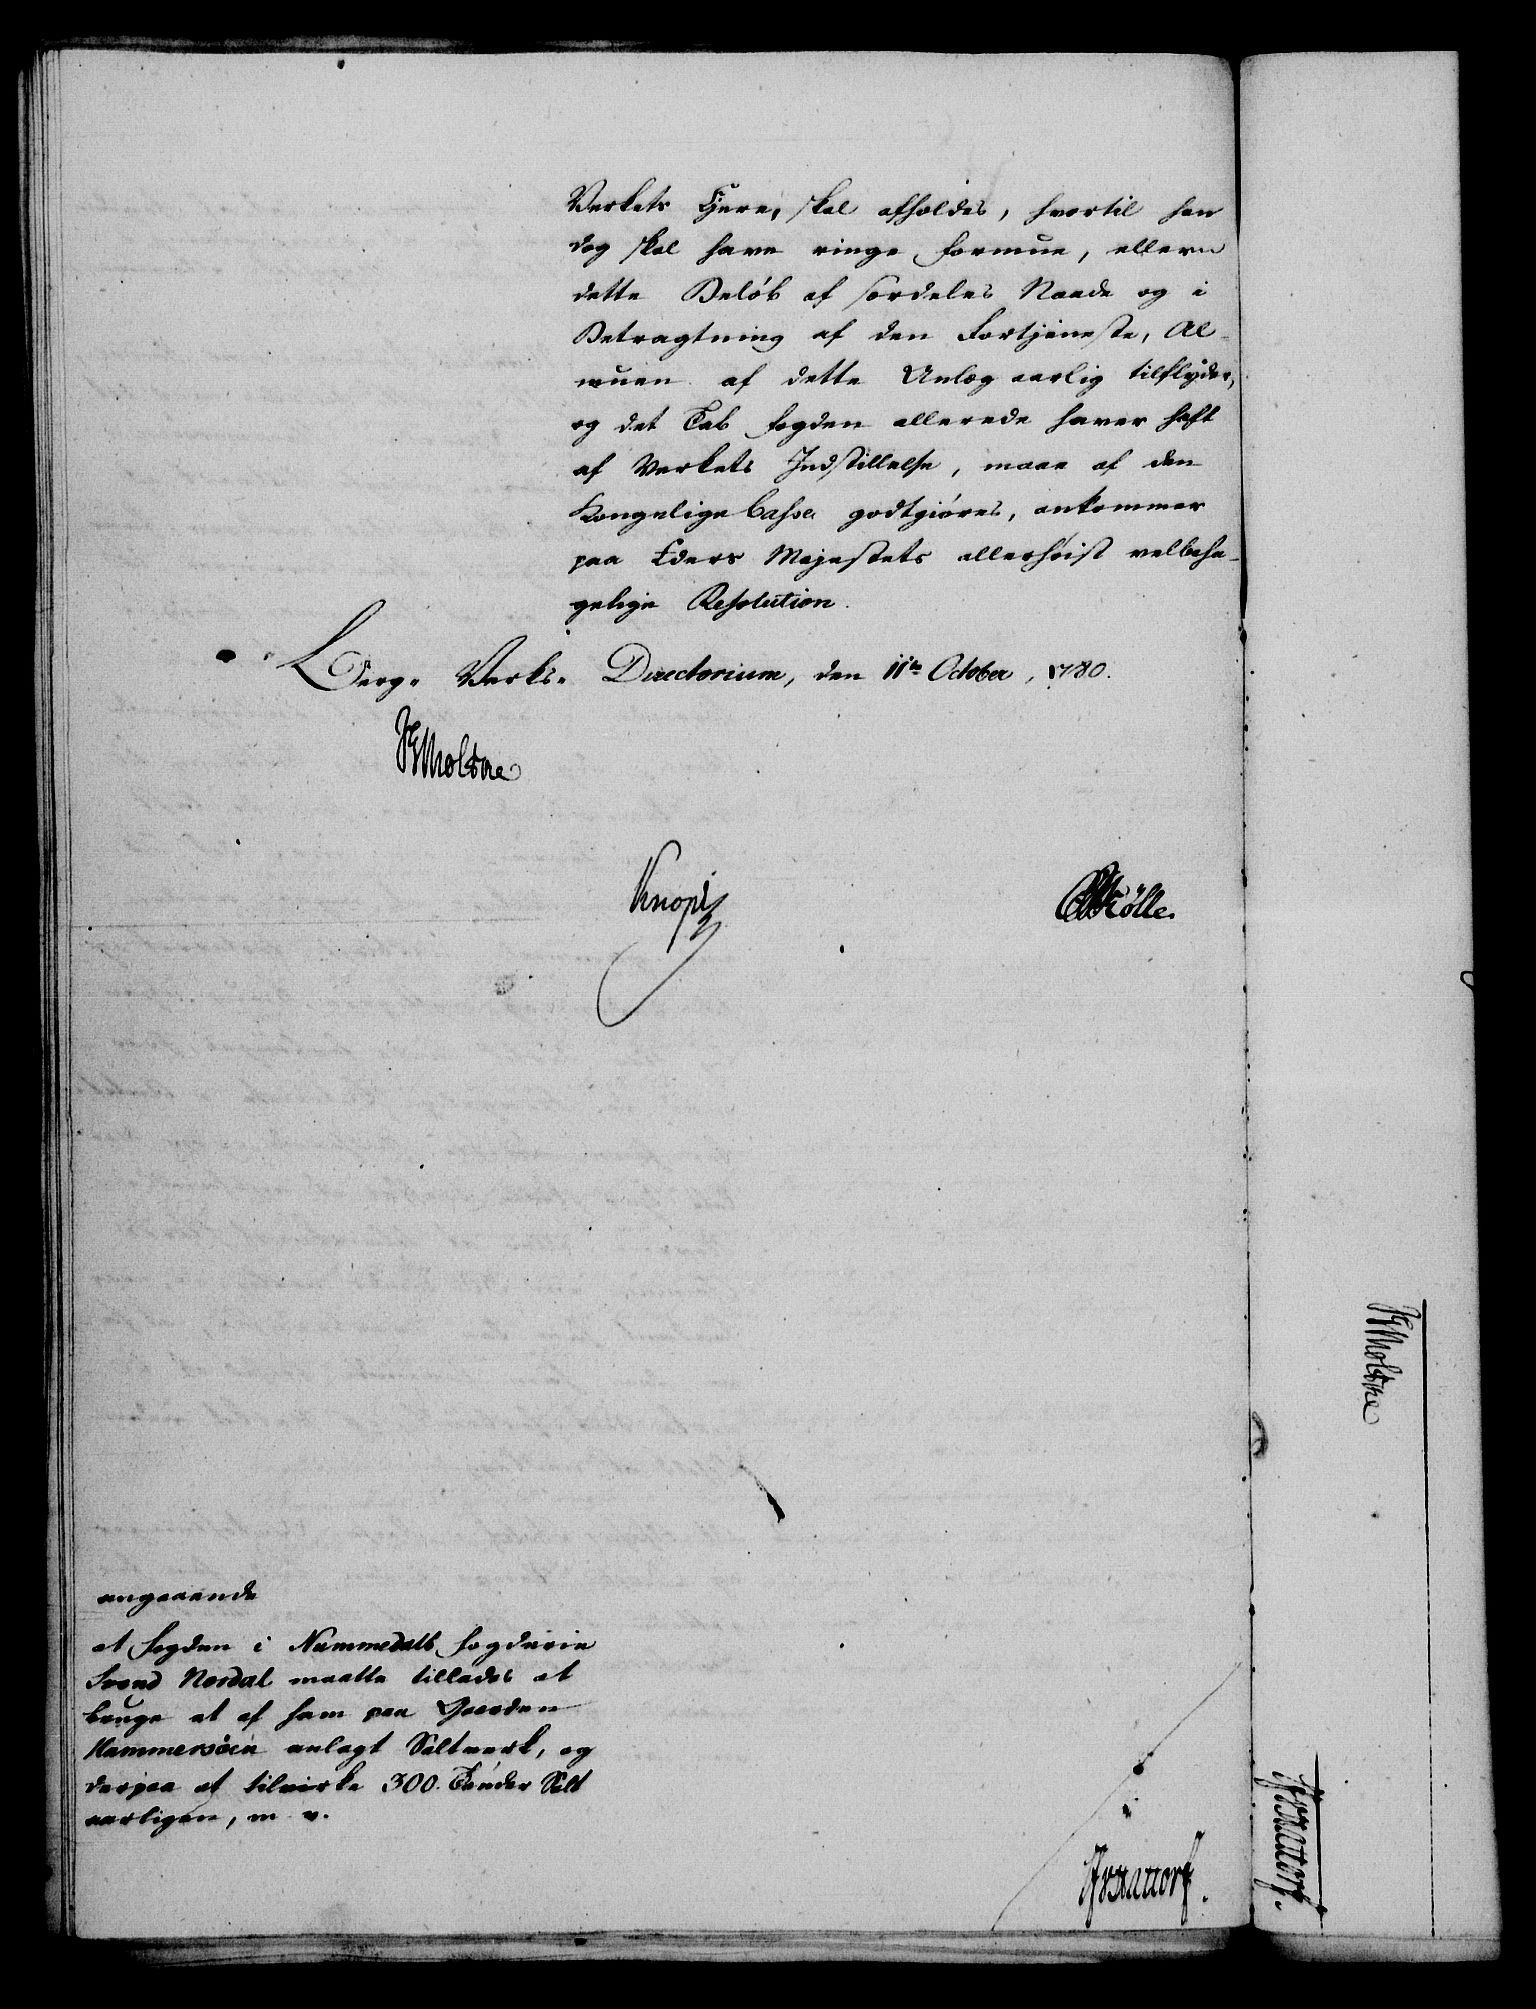 Verkets Ejere, skal afholdes, hvortil han
dog skal have ringe Formue, eller
dette Beløb af særdeles Naade og i
Betragtning af den Fortjeneste, Al-
muen af dette Anlæg aarlig tilflyder,
og det Tab Fogden allerede haver haft
af Verkets Indstillelse, maae af den
Kongelige Cassa godtgiøres, ankommer
paa Eders Majestets allerhøist velbeha-
gelige Resolution.
Berg- Verks- Directorium, den 11te October, 1780.
Moltke
Knoph
Kölle.
angaaende
at Fogden i Nummedals Fogderie
Svend Nordal maatte tillades at
bruge et af ham paa Gaarden
Hammersøen anlagt Saltverk, og
derpaa at tilvirke 300 Tønder Salt
aarligen, m. v.
Moltke